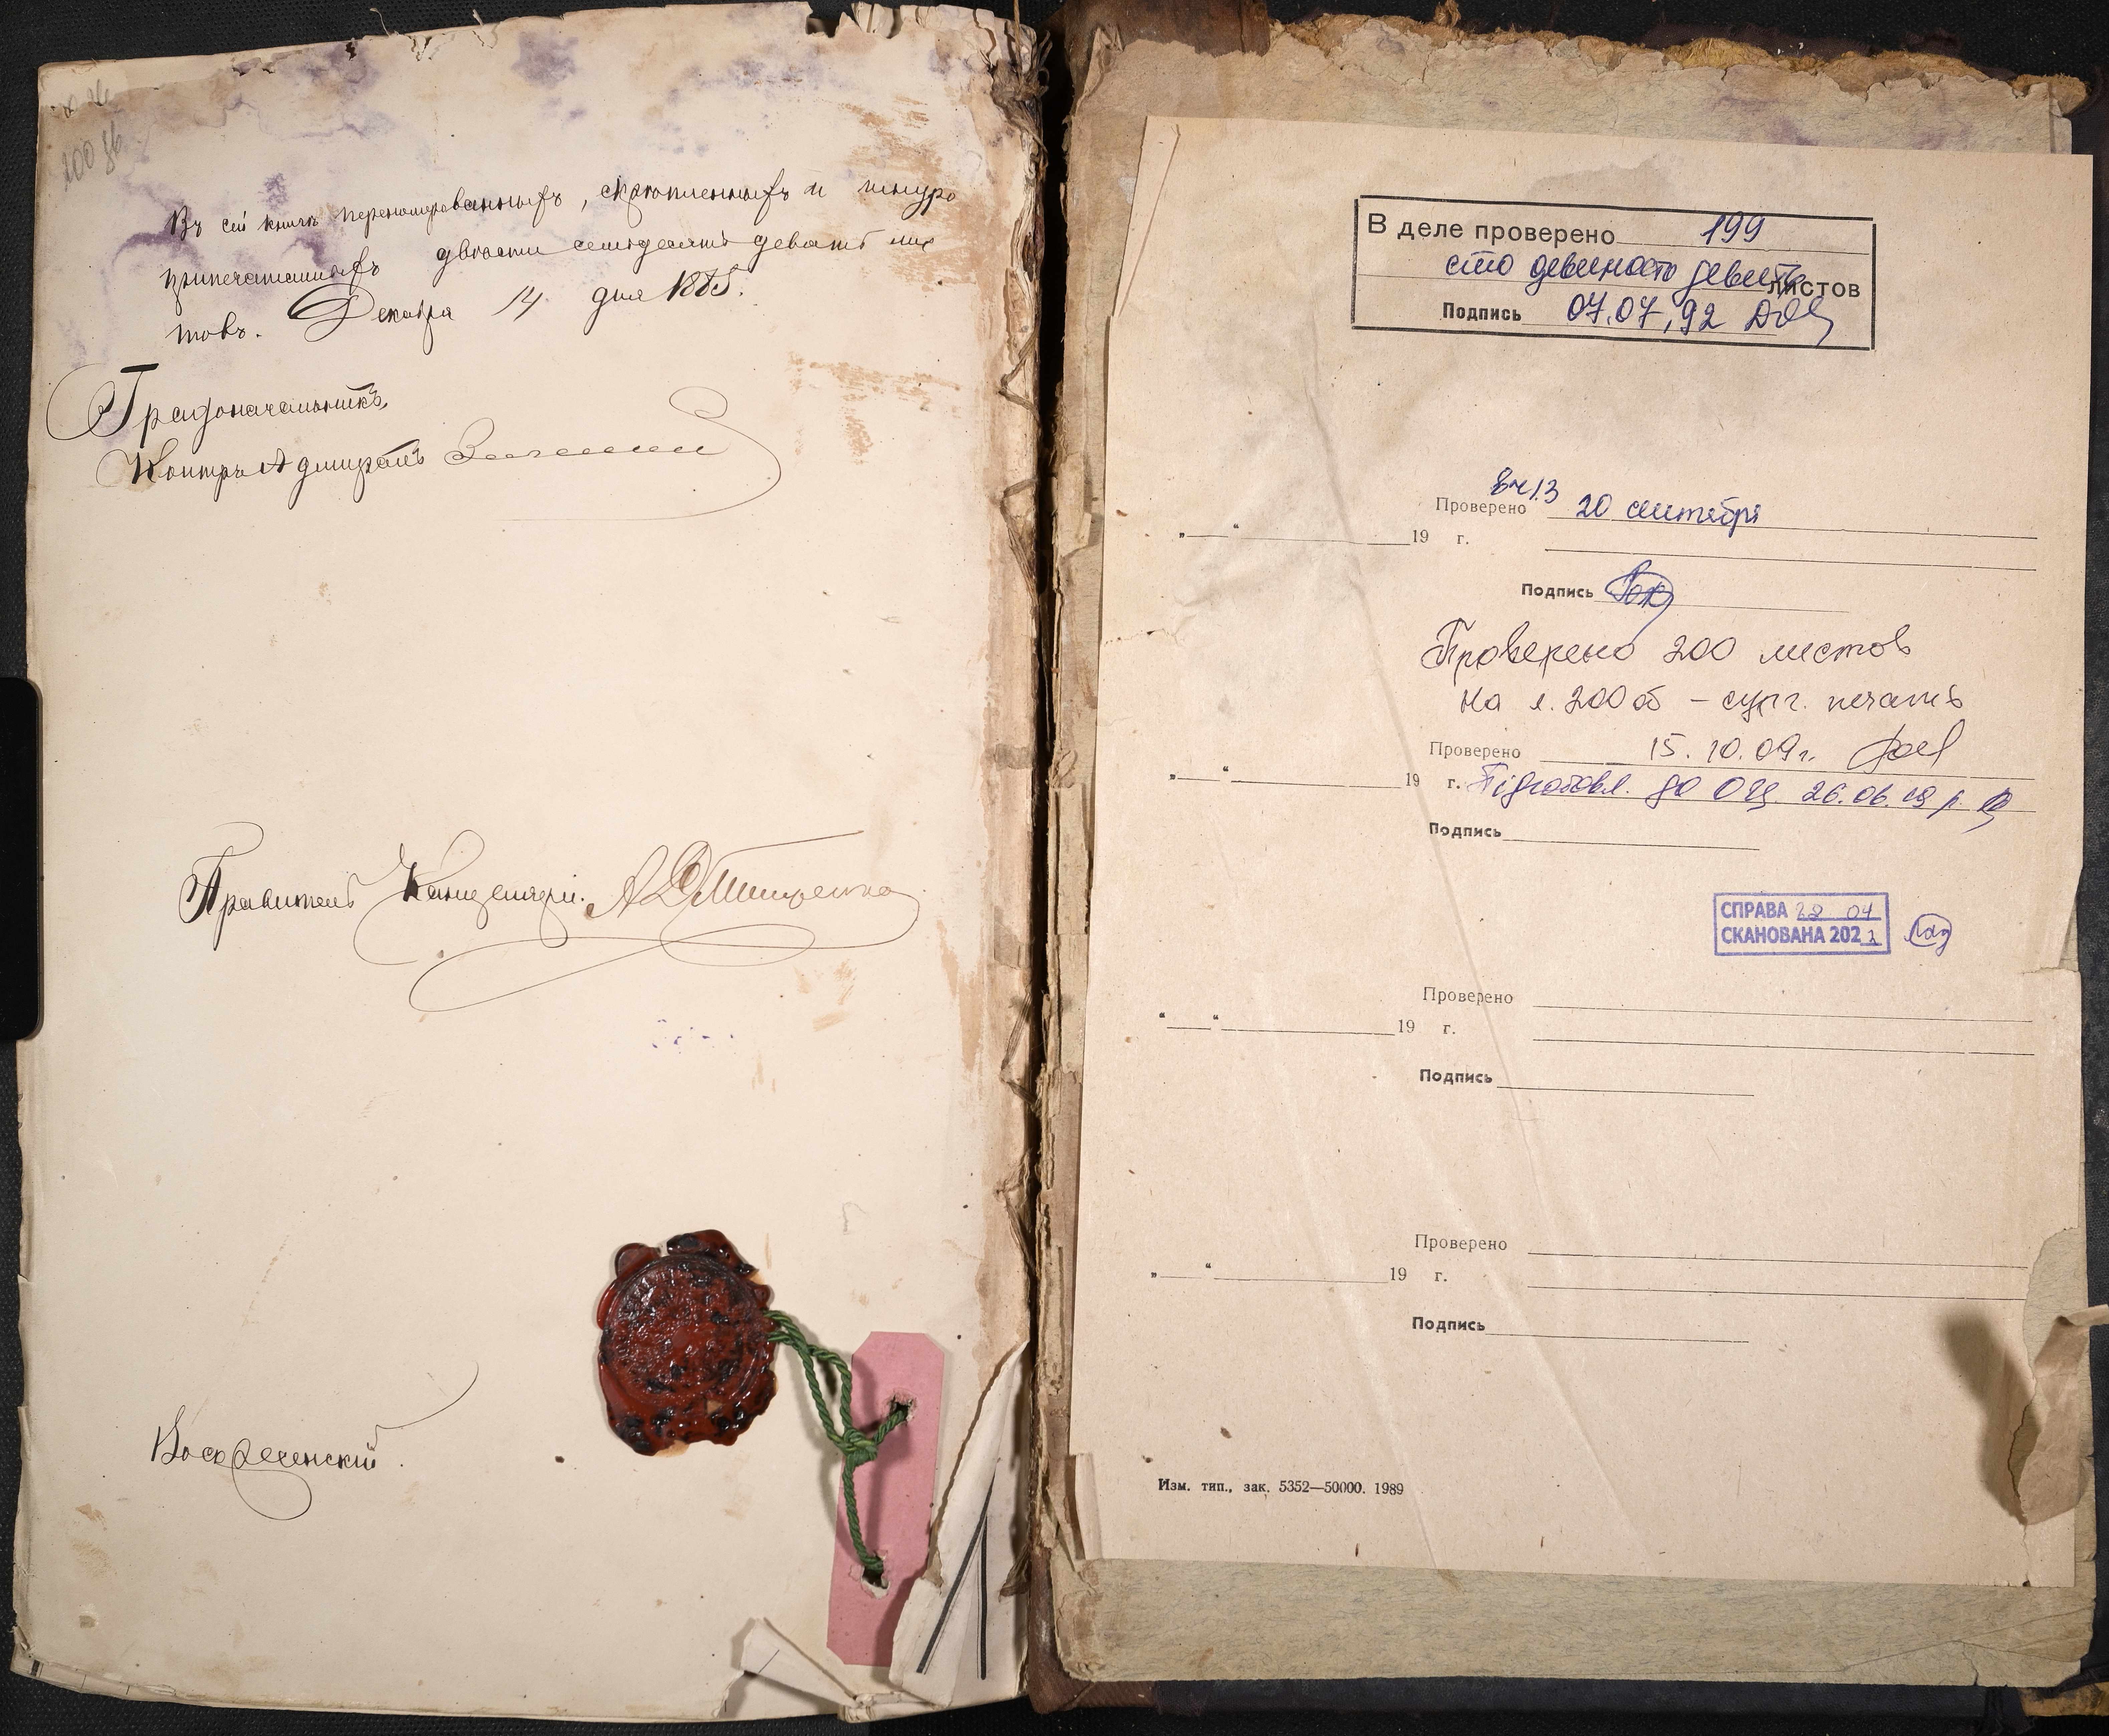 200 об
Въ сей книгѣ перенумерованныхъ, скрѣпленныхъ и шнуро
припечатанныхъ двѣсти семьдесятъ девять лис
товъ. Декабря 14 дня 1885.
Градоначальникъ,
Контръ Адмиралъ
Правитель Канцеляріи.
Воскресенскій.
В деле проверено 199
сто девяносто девять листов
Подпись 07.07.92
Проверено 20 сентября
„ “ 19 г.
Подпись
Проверено 200 листов
На л. 200 об – сург. печать
Проверено 15.10.09г.
„ “ 19 г. Підготовл. до ОЦ 26.06.19 р.
Подпись
СПРАВА 22 04
СКАНОВАНА 2021
Проверено
“ “ 19 г.
Подпись
Проверено
„ “ 19 г.
Подпись
Изм. тип., зак. 5352—50000. 1989